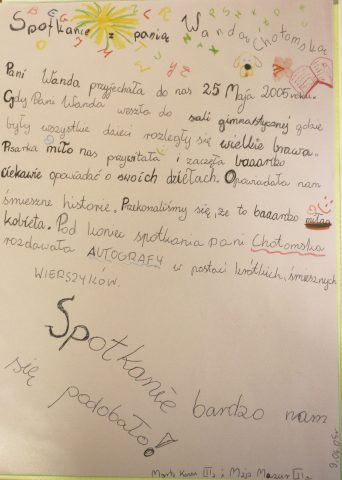 Spotkanie z panią Wandą Chotomską
Pani Wanda przyjechała do nas 25 Maja 2005 roku.
Gdy Pani Wanda weszła do sali gimnastycznej gdzie
były wszystkie dzieci rozległy się wielkie brawa.
Pisarka miło nas przywitała i zaczęła baaardzo
ciekawie opowiadać o swoich dziełach. Opowiadała nam
śmieszne historie. Przekonaliśmy się, że to baaardzo miła
kobieta. Pod koniec spotkania pani Chotomska
rozdawała AUTOGRAFY w postaci krótkich, śmiesznych
WIERSZYKÓW.
Spotkanie bardzo nam
się podobało!
Marta i Maja Mazur
9.06.05r